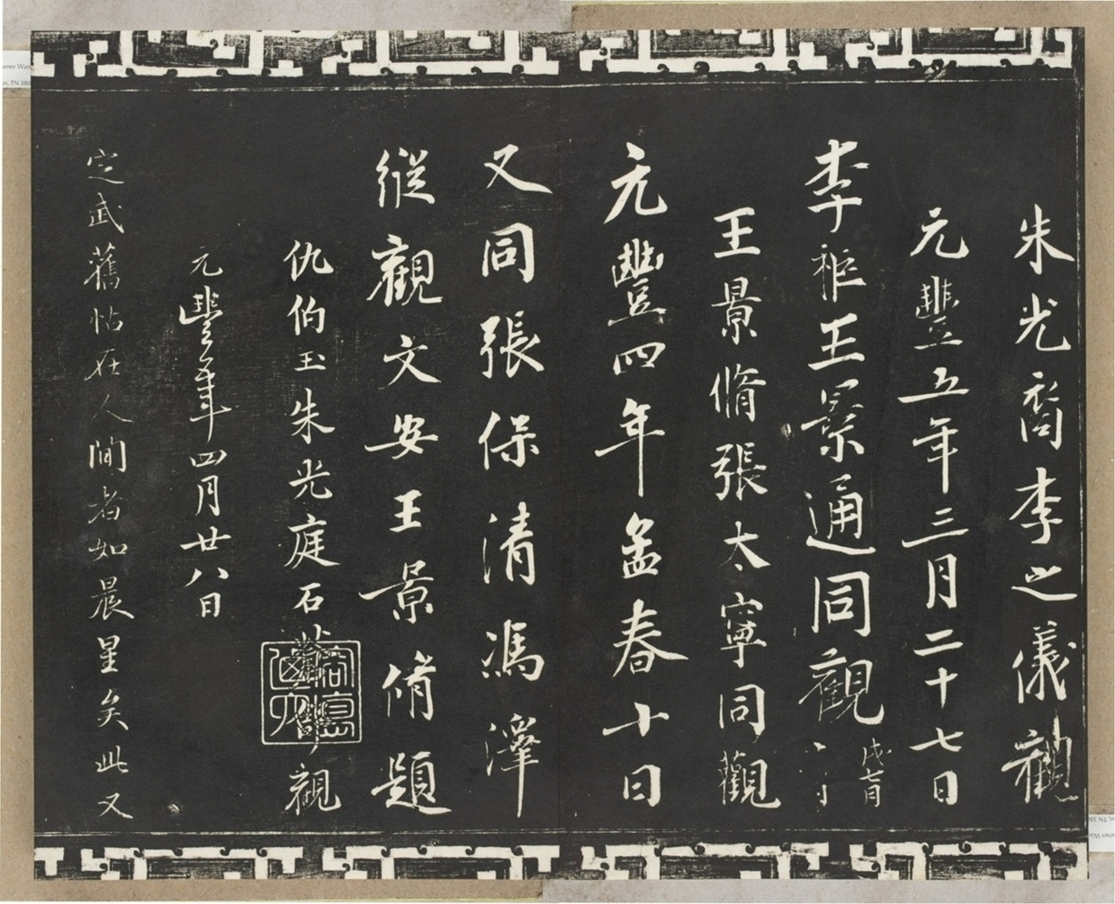 朱光裔李之儀觀
元豐五年三月二十七日
李秬王景通同觀
戊
王景脩張太寧同觀
元豐四年孟春十日
又同張保清馮澤
縱觀文安王景脩題
仇伯玉朱光庭石 觀
元豐年四月廿八日
定武舊帖在人間者如晨星矣此又